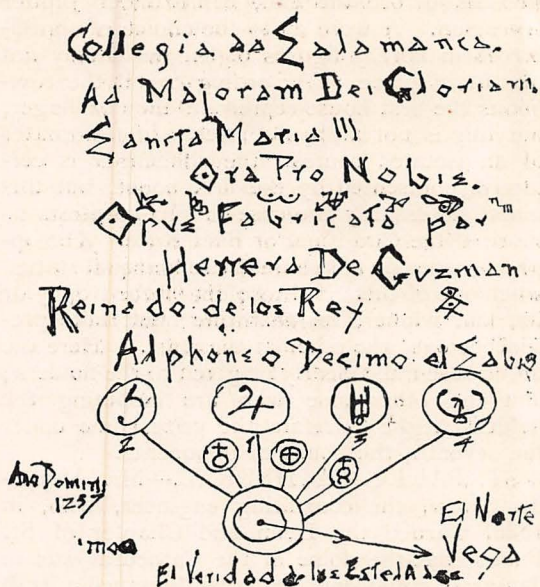 Collegia da Salamanca.
Ad Majoram Dei Gloriam.
Sancta Maria !!!
Ora Pro Nobis.
Opus Fabricata par
Herrera De Guzman
Reinado de los Rey
Alphonso Decimo el Sabio
2 1 3 4
Ano Domini
1257
El Norte
Vega
El Veridad de los Estelados